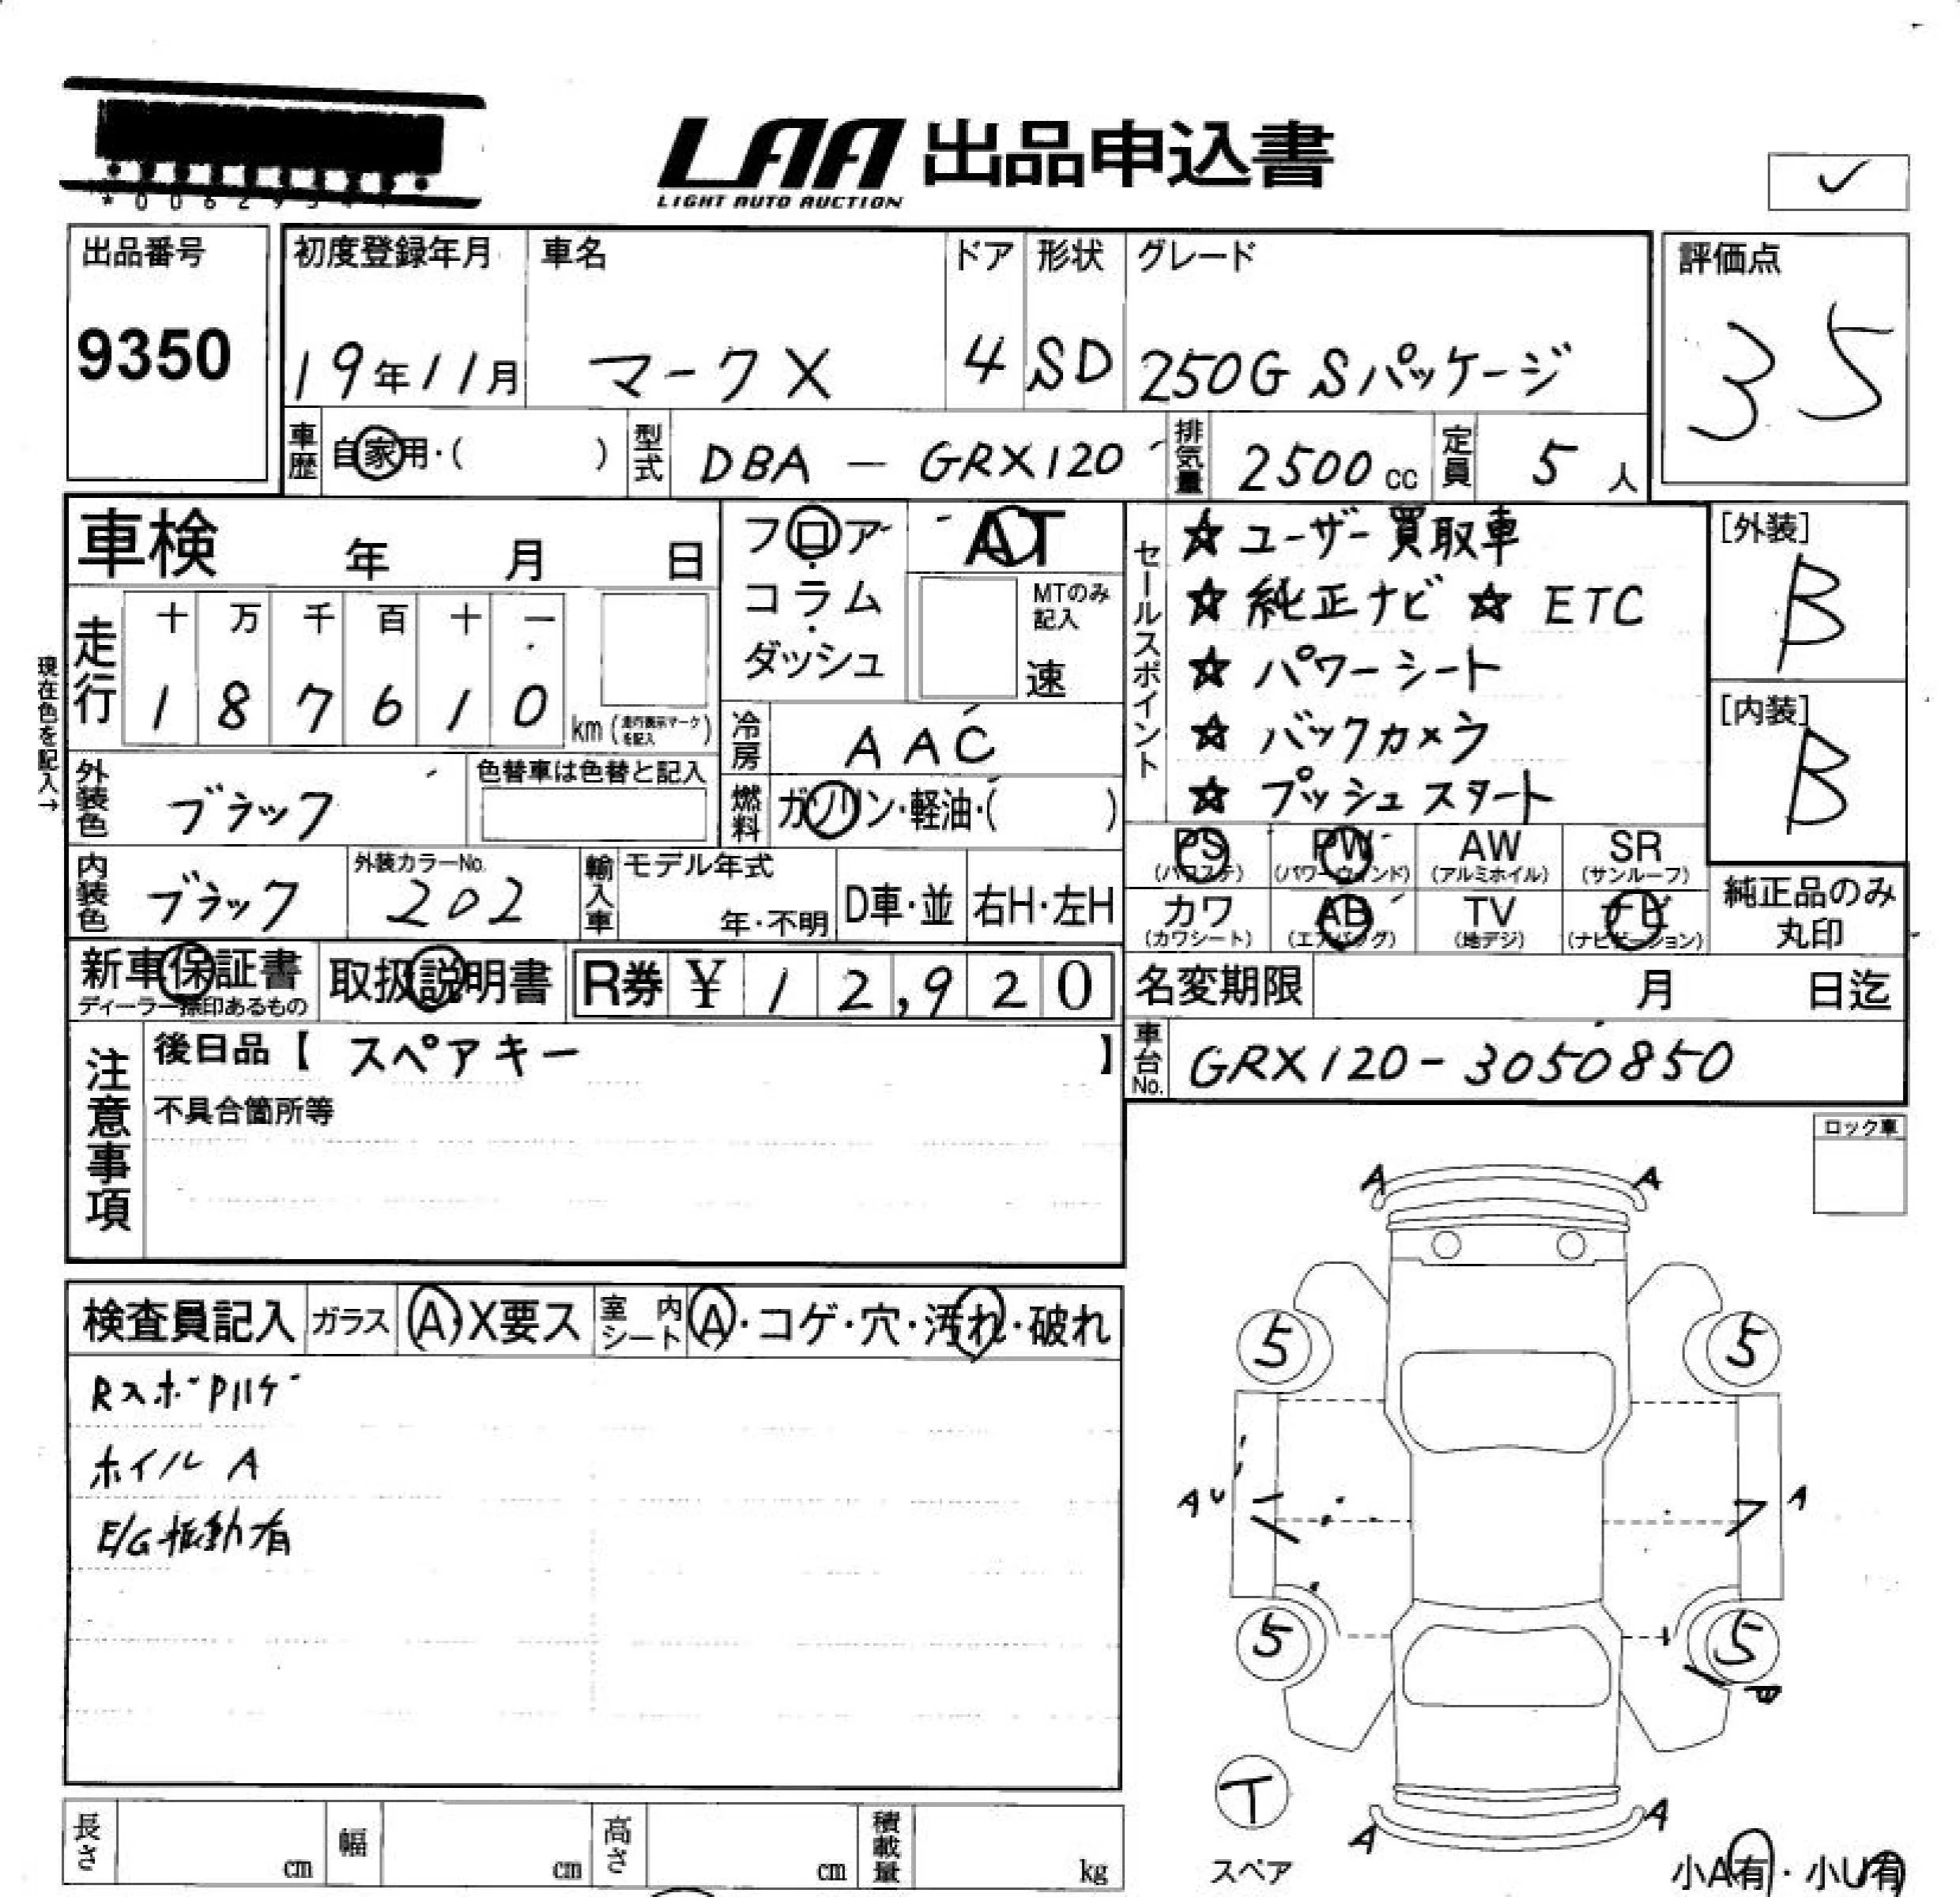 LAA 出品申込書
LIGHT AUTO AUCTION
✓
出品番号
9350
初度登録年月 車名 ドア 形状 グレード
19年11月 マークX 4 SD 250G Sパッケージ
評価点
3 5
車歴 自家用・( ) 型式 DBA - GRX120 排気量 2500cc 定員 5人
車検 年 月 日
フロア
コラム
ダッシュ
AT
MTのみ記入
速
セールスポイント
☆ ユーザー買取車
☆ 純正ナビ ☆ ETC
☆ パワーシート
☆ バックカメラ
☆ プッシュスタート
[外装]
B
[内装]
B
現在色を記入→
走行
十 万 千 百 十 一
1 8 7 6 1 0 km (走行表示マークを記入)
冷房 AAC
外装色 ブラック
色替車は色替と記入
燃料 ガソリン・軽油・( )
内装色 ブラック
外装カラーNo.
202
輸入車 モデル年式
年・不明 D車・並 右H・左H
PS (パワステ) PW (パワーウィンド) AW (アルミホイル) SR (サンルーフ)
カワ (カワシート) AB (エアバッグ) TV (地デジ) ナビ (ナビゲーション)
純正品のみ
丸印
新車保証書
ディーラー捺印あるもの
取扱説明書
R券 ¥ 12,920
名変期限 月 日迄
注意事項
後日品【 スペアキー 】
不具合箇所等
車台No. GRX120-3050850
ロック車
検査員記入 ガラス A・X要ス 室内シート A・コゲ・穴・汚れ・破れ
RスポPハゲ
ホイル A
E/G振動有
A A
5 5
AU A
5 5
B
T
スペア
A A
小A有・小U有
長さ cm 幅 cm 高さ cm 積載量 kg